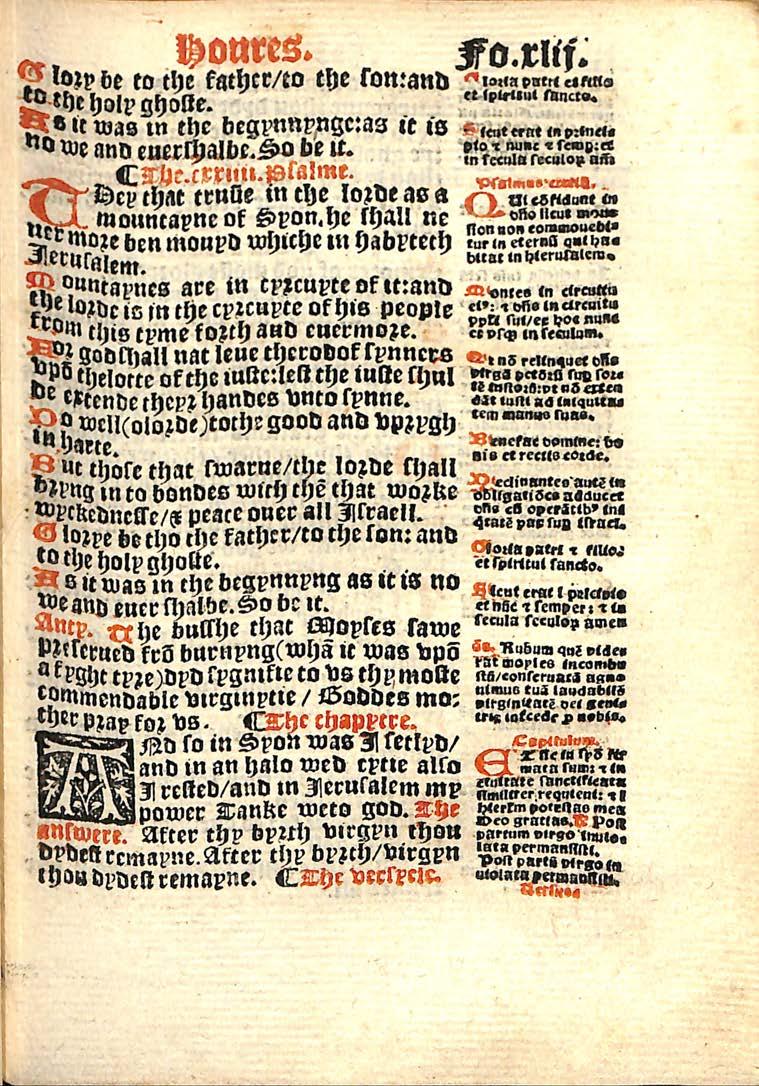 Houres.
Glory be to the father/to the son:and
to the holy ghoste.
As it was in the begynnynge:as it is
no we and evershalbe. So be it.
¶The.cxxiiii.Psalme.
THey that truste in the lorde as a
mountayne of Syon. he shall ne
uer more ben mouyd whiche in habyteth
Jerusalem.
Mountaynes are in cyrcuyte of it:and
the lorde is in the cyrcuyte of his people
from this tyme forth and euermore.
For god shall nat leue therodof synners
vpõ thelotte of the iuste:lest the iuste shul
de extende theyr handes vnto synne.
Do well(olorde)tothe good and vprygh
in harte.
But those that swarue/the lorde shall
bryng in to bondes with thẽ that worke
wyckednesse/& peace ouer all Israell.
Glorye be tho the father/to the son: and
to the holy ghoste.
As it was in the begynnyng as it is no
we and euer shalbe. So be it.
Anty. The busshe that Moyses sawe
preserued frõ burnyng(whã it was vpõ
a fyght tyre)dyd sygnifie to vs thy moste
commendable virginytie / Goddes mo:
ther pray for vs. ¶The chapytre.
ANd so in Syon was I setlyd/
and in an halo wed cytie also
I rested/and in Jerusalem my
power Tanke weto god. The
answere. After thy byrth virgyn thou
dydest remayne. After thy byrth/virgyn
thou dydest remayne. ¶The versycle.
Fo.xlij.
Gloria patri et filio
et spiritui sancto.
Sicut erat in princi
pio ⁊ nunc ⁊ semp: et
in secula seculoꝝ
Psalmus
QUi cõfidunt in
dño sicut mons
sion non commouebi
tur in eternũ qui ha
bitat in hierusalem.
Montes in circuitu
eiꝰ: ⁊ dñs in circuitu
ppli sui/ex hoc nunc
et vsꝙ in seculum.
Qr nõ relinquet dñs
virgã petorũ suꝑ sor
tẽ iustorũ:vt nõ exten
dãt iusti ad iniquita
tem manus suas.
Benefac domine: bo
nis et rectis corde.
Declinantes autẽ in
obligatiões adducet
dñs cũ operãtibꝰ ini
pax suꝑ israel.
Gloria patri ⁊ filio:
et spiritui sancto.
Sicut erat i principio
et nũc ⁊ semper: ⁊ in
secula seculoꝝ amen
Rubum quẽ vider
rat moyses incombu
stũ/conseruatã agno
uimus tuã laudabilẽ
virginitatẽ dei geni
trix intcede ꝓ nobis.
Capitulum.
ET sic in syõ fir
mata sum: ⁊ in
ciuitate sanctificata
similiter requieui: ⁊ i
hierlm potestas mea
Deo gratias. Post
partum virgo inuio
lata permansisti.
Post partũ virgo in
uiolata permansisti.
Versicus